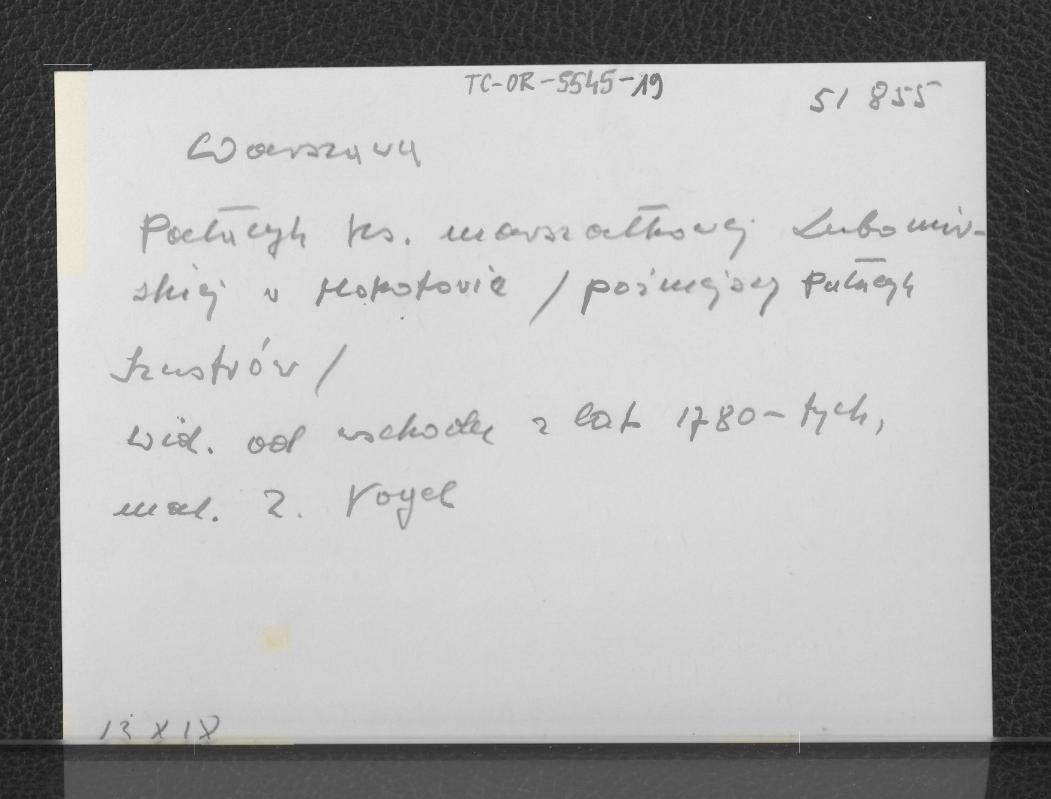 TC-OR-5545-19
51 855
Warszawa
Pałacyk ks. marszałkowej Lubomir-
skiej w Mokotowie / późniejszy Pałacyk
Szustrów /
wid. od wschodu z lat 1780-tych,
mal. Z. Vogel
13 x 18